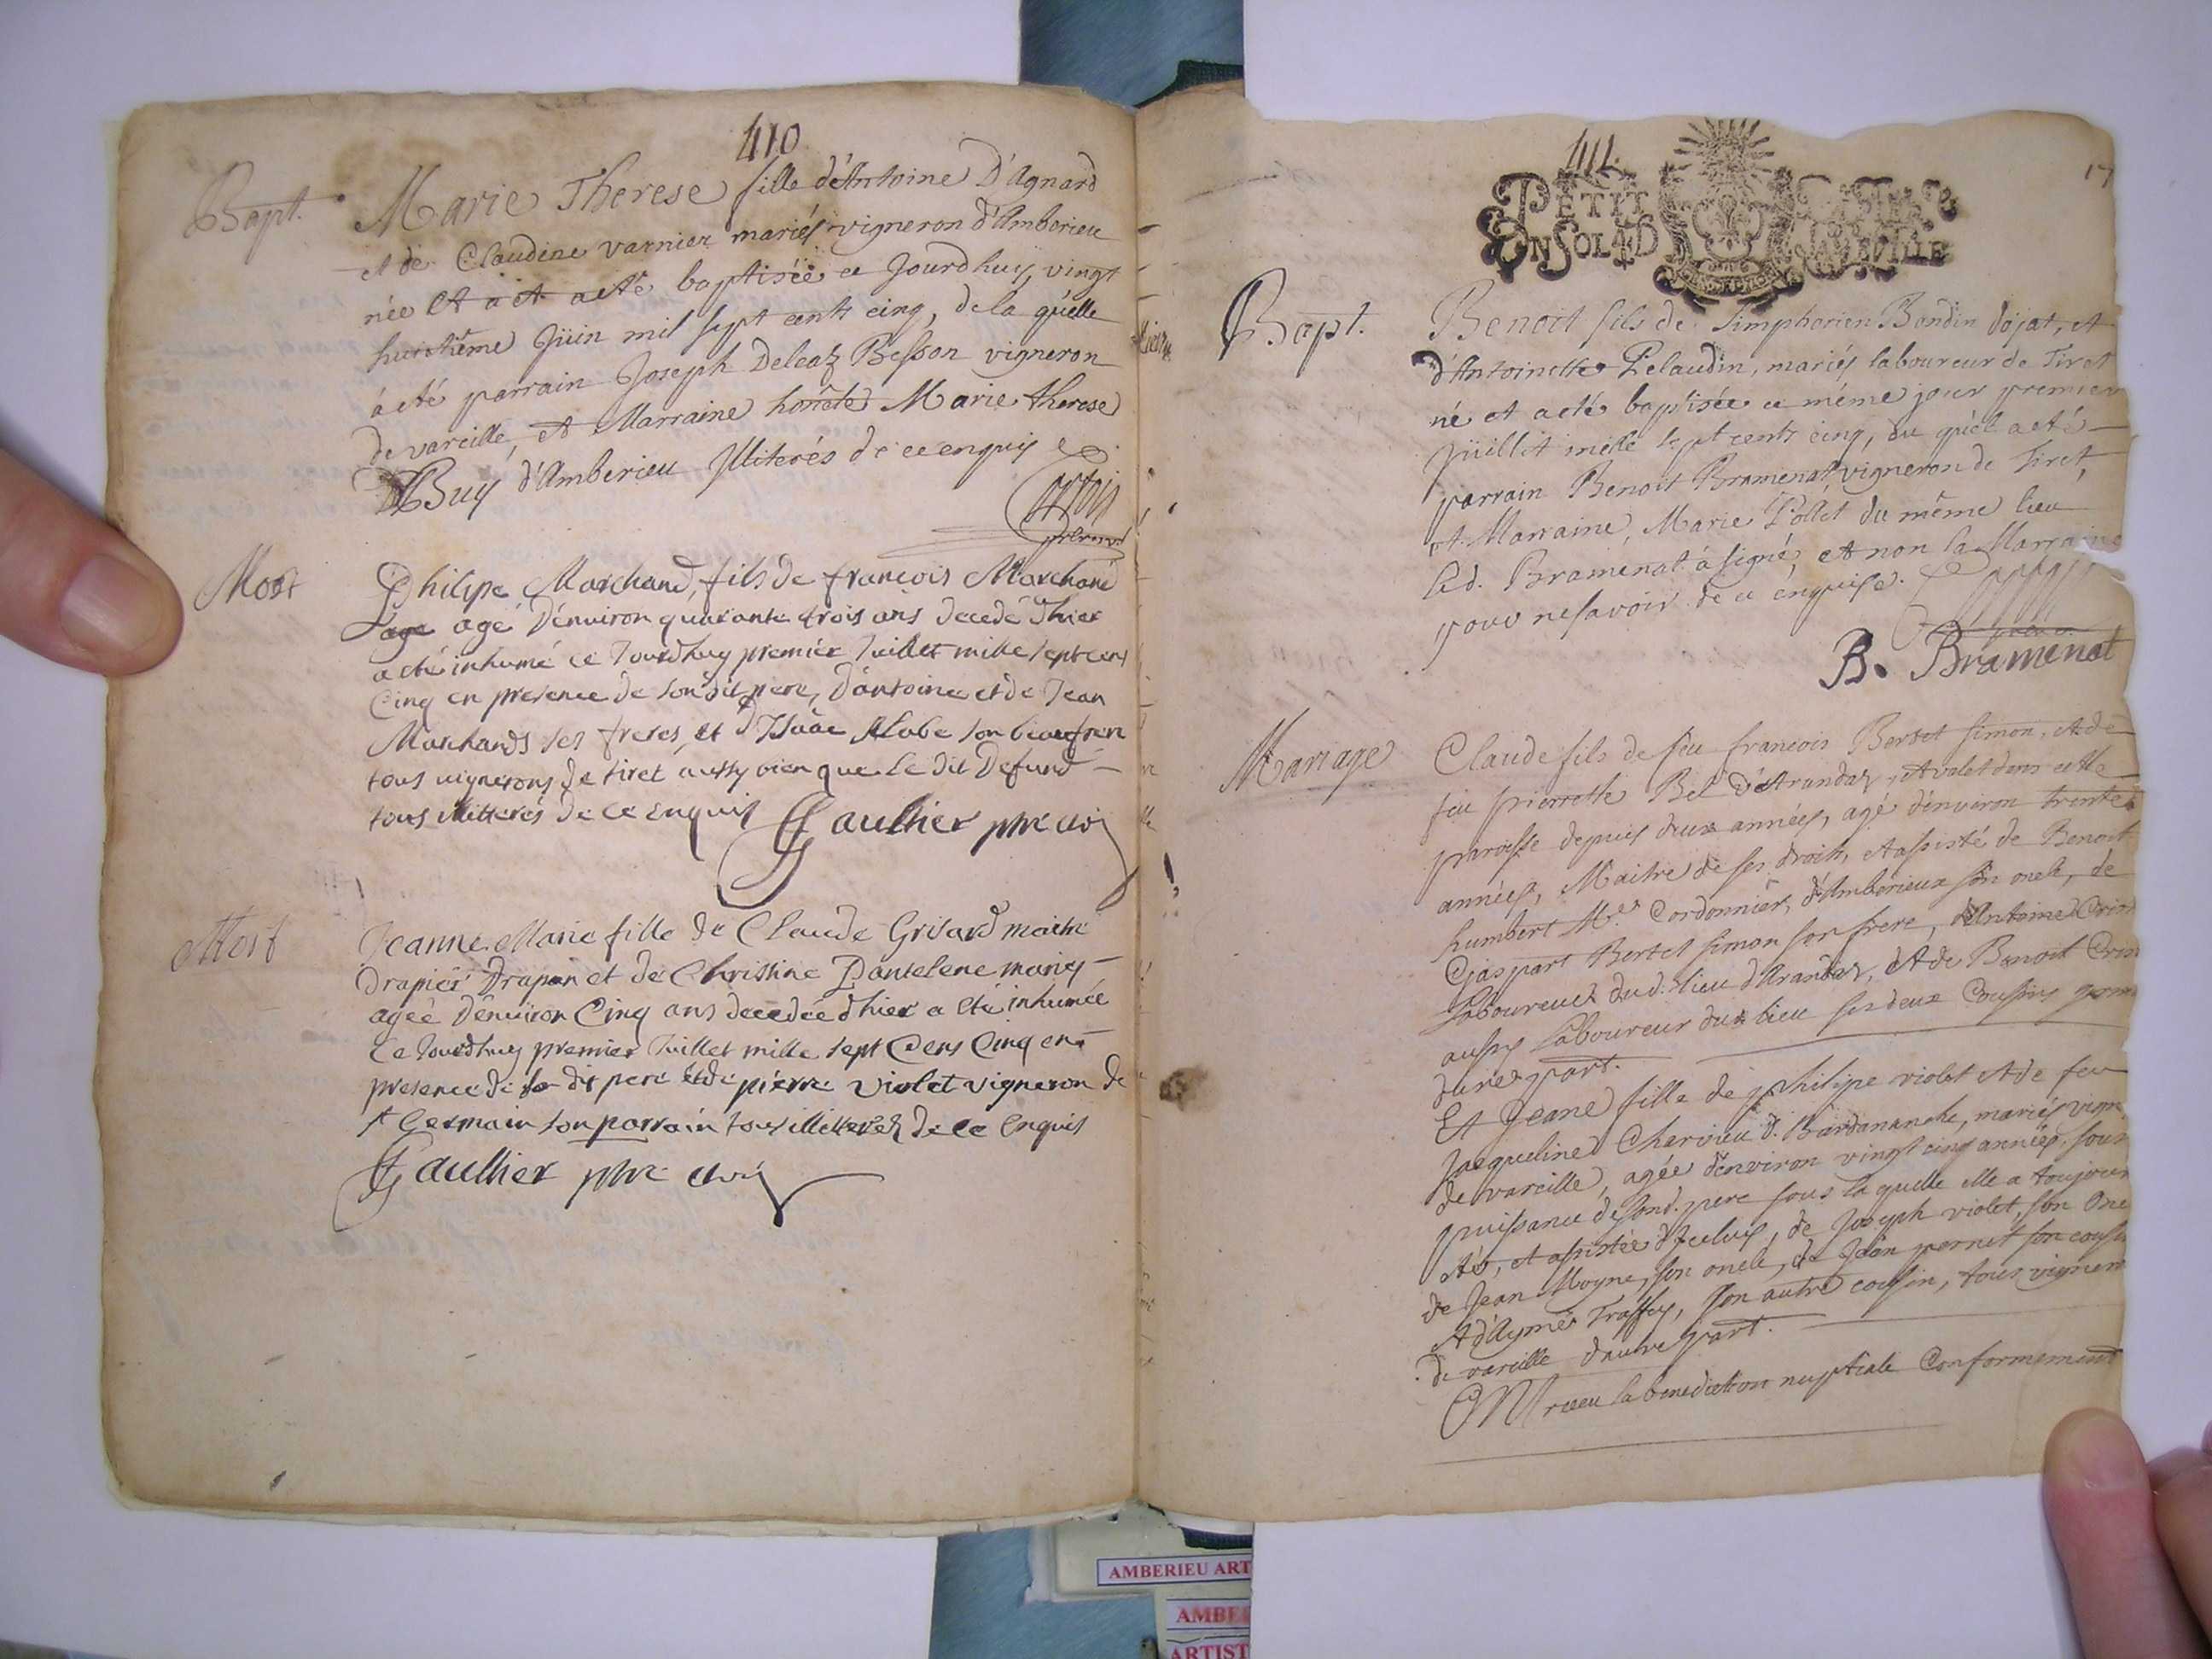 410
Bapt.
Marie Therese fille d'Antoine D'Agnard
et de Claudine varnier mariés vigneron d'Amberieu
née et a eté baptisée ce Jourdhuy, vingt
huictiême Juin mil sept cents cinq, de la qu'elle
á eté parrain Joseph Deleaz Besson vigneron
de vareille, et Marraine honête Marie therese
Buy d'Amberieu Illiterés de ce enquis
Mort
Philipe Marchand, fils de francois Marchand
age agé D'enuiron quarante trois ans decedé d'hier
a eté inhumé ce Jourdhuy premier Juillet mille sept cens
Cinq en presence de son dit pere, D'antoine et de Jean
Marchands ses freres, et d'Isâac Labe son beaufrere
tous uignerons de tiret aussy bien que Le dit Defund
tous illitterés de ce Enquis Gaulhier ptre
Mort
Jeanne Marie fille de Claude Grisard maitre
Drapier Drapan et de Christine Pantelene mariés
ageé D'enuiron Cinq ans decedeé d'hier a eté inhumée
Ce Jourdhuy premier Juillet mille sept Cens Cinq en
presence de son dit pere et de pierre violet vigneron de
st Germain son parrain tous illitterez de ce Enquis
Gaulhier ptre
411.
17
PETIT
EN SOL 4D
Bapt.
Benoit fils de Simphorien Bondin dojat, et
d'Antoinette Pelaudin, mariés laboureur de Tiret
né et a eté baptisée ce même jour premier
Juillet mille sept cents cinq, du quèl a eté
parrain Benoit Bramenat vigneron de Tiret,
et Marraine, Marie Pollet du même lieu
led. Bramenat á signé, et non la Marraine
pour ne savoir de ce enquise.
B. Bramenat
Mariage
Claude fils de feu francois Bertet simon, et de
feu pierrette Bel d'Arandaz, et valet dans cette
paroisse depuis deux années, agé d'enviroin trente
années, Maitre de ses droits, et assisté de Benoit
humbert Mre Cordonnier, d'Amberieux son oncle, de
Gaspart Bertet simon son frere, d'Antoine Crin
Laboureurs dud. lieu d'Arandaz, et de Benoit Crin
aussy Laboureur dud lieu ses deux Coussins germ
dune part.
Et Jeane fille de philipe violet et de feu
Jacqueline Chervieu d. Bardananche, mariés vign
de vareille, agée d'enviroin vingt cinq années, sous
puissance de sond. pere sous la quelle elle a toujour
été, et assistée d'Icelui, de Joseph violet, son Onc
de Jean Moyne, son oncle, de Jean pernet son cousi
et d'Aymé Traffey, son autre cousin, tous vigner
de vareille d'autre part.
Ont receu la benediction nuptiale Conformement
AMBERIEU ART
AMBE
ARTIST